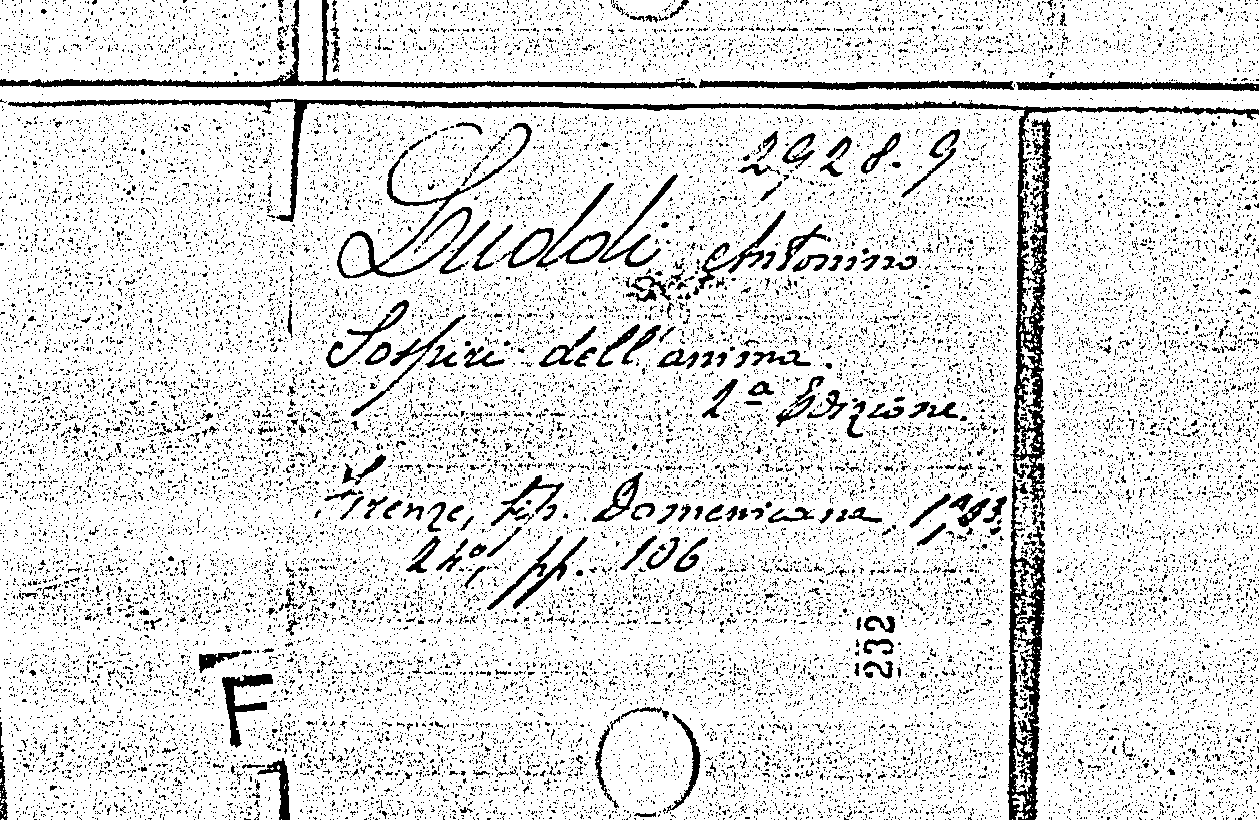 2928.9
Luddi Antonino
Sospiri dell'anima.
2ª Edizione.
Firenze, tip. Domenicana,
24º, pp. 106
232
F